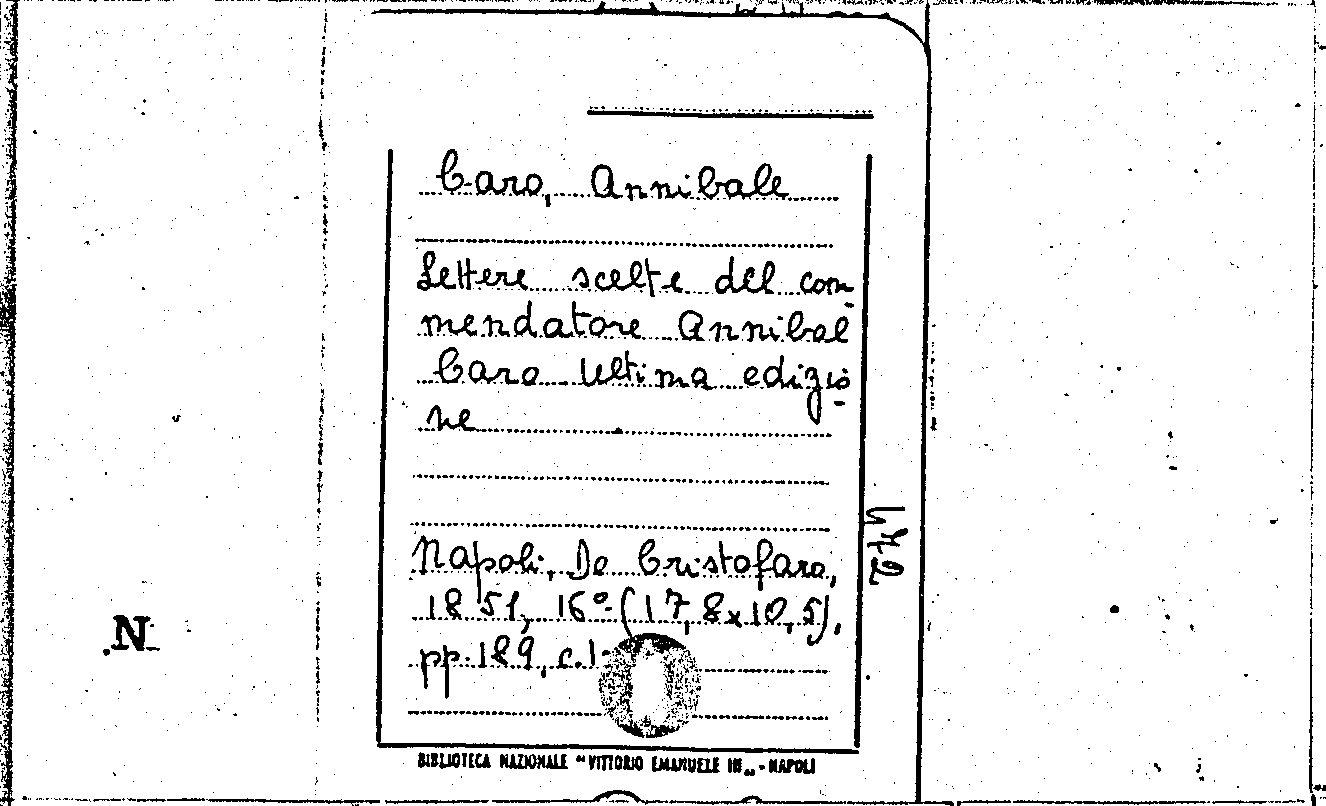 Caro, Annibale
Lettere scelte del com-
mendatore Annibal
Caro Ultima edizio-
ne
Napoli, De Cristofaro,
1851, 16º (17,8x10,5),
pp. 189, c. 1.
472
N
BIBLIOTECA NAZIONALE "VITTORIO EMANUELE III„ - NAPOLI